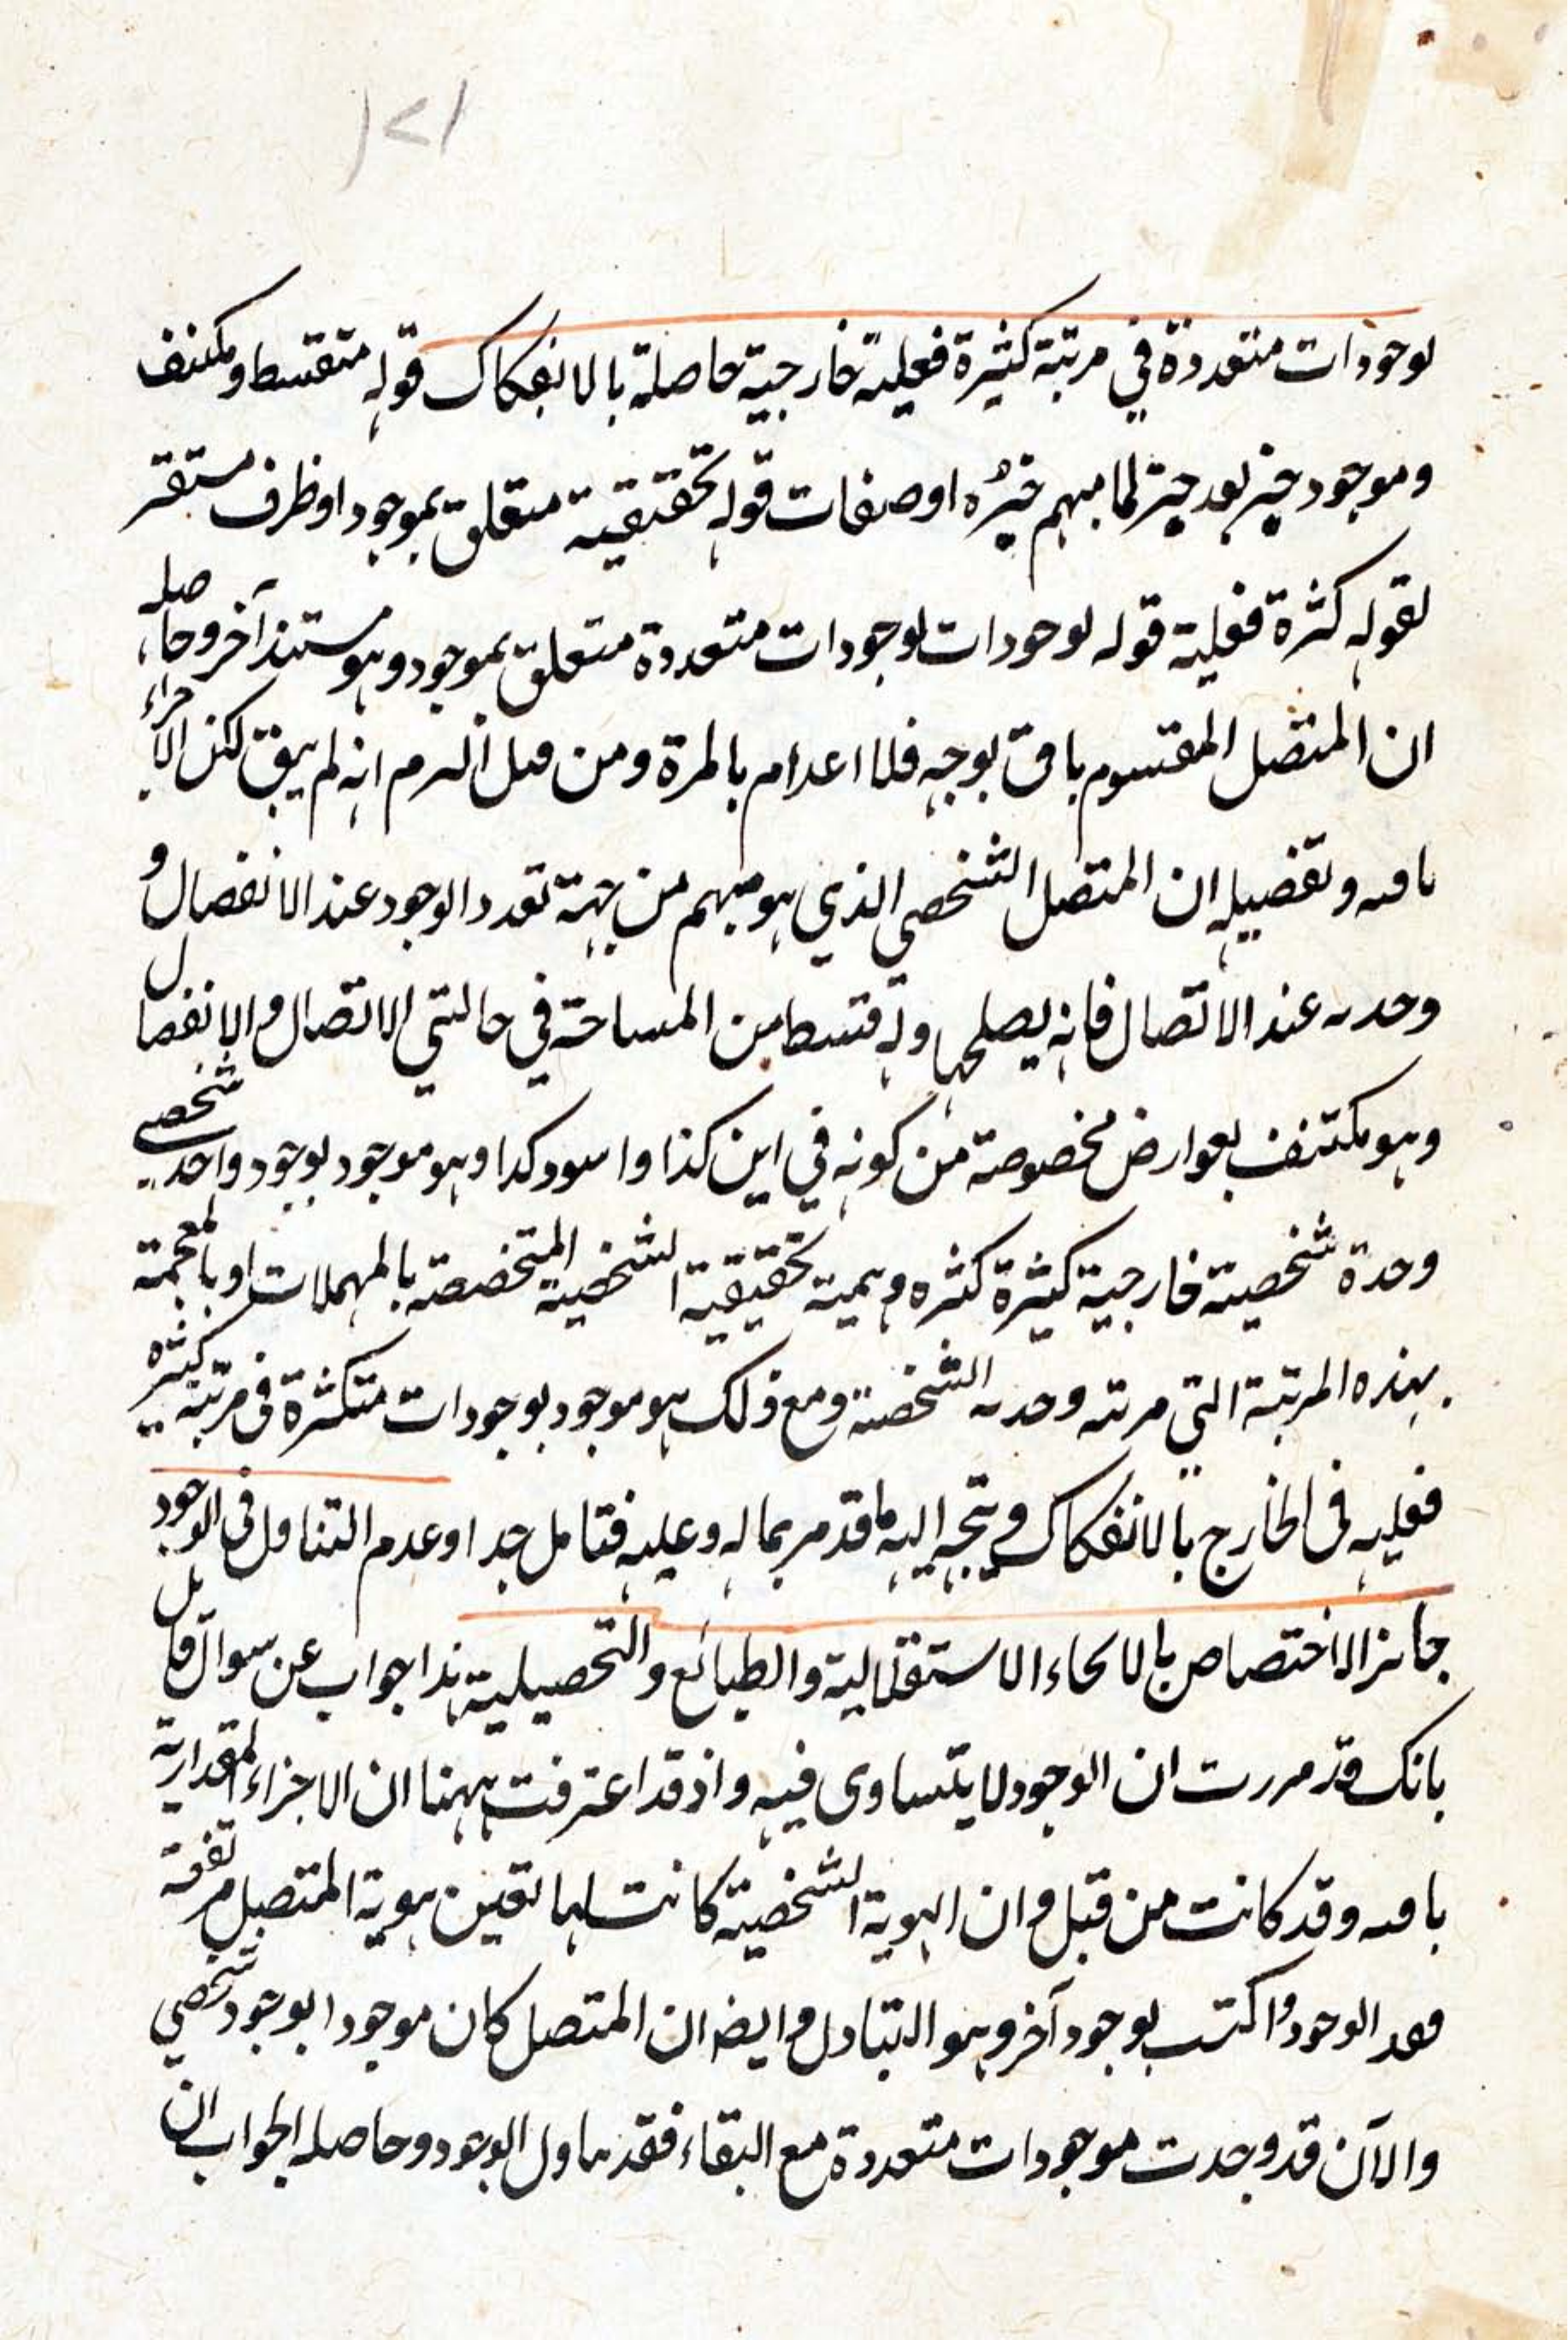 لوجودات متعددة في مرتبة كثيرة فعلية خارجية حاصلة بالانفكاك قوله متقسط ومكتنف
وموجود خبر بعد خبر لما مبهم خبره او صفات قوله تحقيقية متعلق بموجود او ظرف مستقر
لقوله كثرة فعلية قوله لوجودات لوجودات متعددة متعلق بموجود وهو مستند آخر وحاصله
ان المتصل المقسوم باق بوجه فلا اعدام بالمرة ومن انه لم يبق لكن الاجزاء
باقيه وتفصيله ان المتصل الشخصي الذي هو مبهم من جهة تعدد الوجود عند الانفصال و
وحدته عند الاتصال فانه يصلحها وله قسط من المساحة في حالتي الاتصال والانفصال
وهو مكتنف بعوارض مخصوصة من كونه في اين كذا واسود كذا وهو موجود بوجود واحد شخصي
وحدة شخصية خارجية كثيرة كثره وهمية تحقيقية الشخصية المتخصصة بالمهملات او بالمعجمة
بهذه المرتبة التي مرتبه وحدته الشخصية ومع ذلك هو موجود بوجودات متكثرة في مرتبة كثيره
فعليه في الخارج بالانفكاك ويتجه اليه ما قد مر بما له وعليه فتامل جدا وعدم التناول في الوجود
جائز الاختصاص بالانحاء الاستقلالية والطبائع والتحصيلية هذا جواب عن سوال قائل
بانك قد مررت ان الوجود لا يتساوى فيه واذ قد اعترفت ههنا ان الاجزاء المقدارية
باقيه وقد كانت من قبل وان الهوية الشخصية كانت لها تعين هوية المتصل مرتفعة
الوجود واكتسب بوجود آخر وهو التبادل وايضا ان المتصل كان موجودا بوجود شخصي
والآن قد وجدت موجودات متعددة مع البقاء فقد الوجود وحاصله الجواب ان